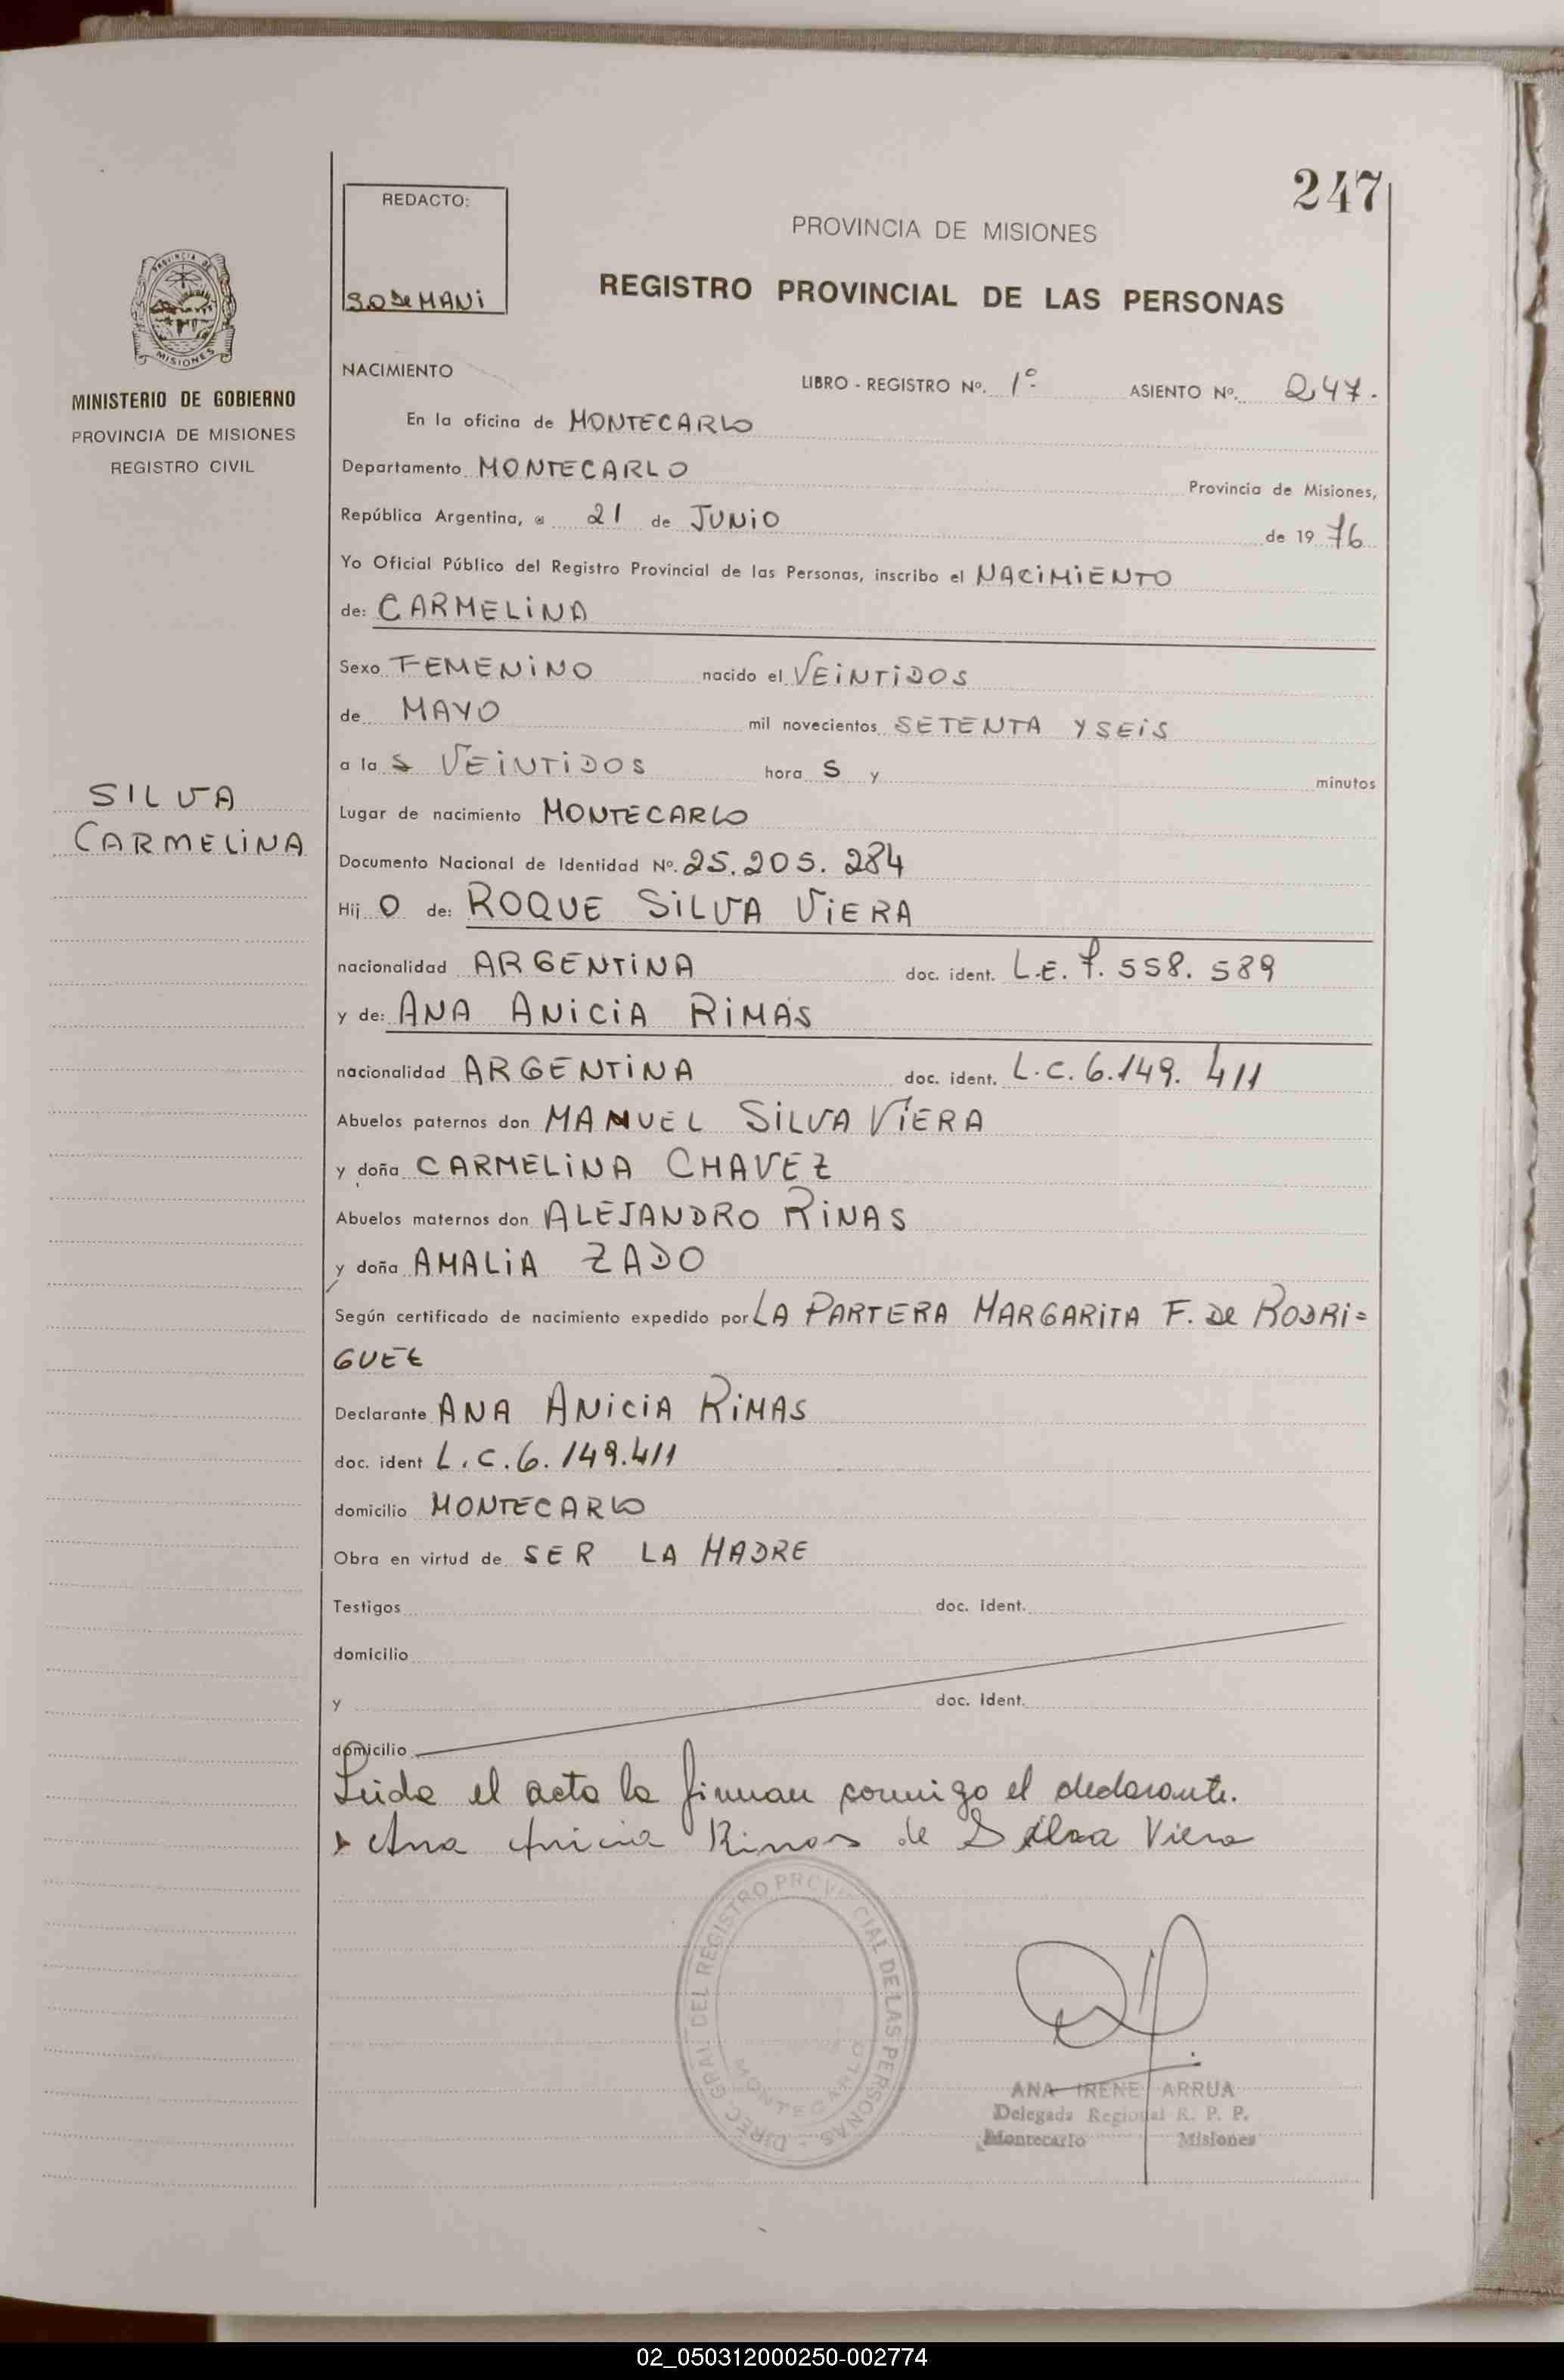 247
REDACTO:
S.O de MANI
PROVINCIA DE MISIONES
REGISTRO PROVINCIAL DE LAS PERSONAS
PROVINCIA DE
MISIONES
MINISTERIO DE GOBIERNO
PROVINCIA DE MISIONES
REGISTRO CIVIL
SILVA
CARMELINA
NACIMIENTO LIBRO - REGISTRO Nº. 1º ASIENTO Nº. 247.
En la oficina de MONTECARLO
Departamento MONTECARLO Provincia de Misiones,
República Argentina, a 21 de JUNIO de 1976
Yo Oficial Público del Registro Provincial de las Personas, inscribo el NACIMIENTO
de: CARMELINA
Sexo FEMENINO nacido el VEINTIDOS
de MAYO mil novecientos SETENTA Y SEIS
a la S VEINTIDOS hora S y minutos
Lugar de nacimiento MONTECARLO
Documento Nacional de Identidad Nº. 25.205.284
Hij O de: ROQUE SILVA VIERA
nacionalidad ARGENTINA doc. ident. L.E. 7.558.589
y de: ANA ANICIA RIMAS
nacionalidad ARGENTINA doc. ident. L.C. 6.149.411
Abuelos paternos don MANUEL SILVA VIERA
y doña CARMELINA CHAVEZ
Abuelos maternos don ALEJANDRO RINAS
y doña AMALIA ZADO
Según certificado de nacimiento expedido por LA PARTERA MARGARITA F. De RODRI=
GUEZ
Declarante ANA ANICIA RIMAS
doc. ident L.C. 6.149.411
domicilio MONTECARLO
Obra en virtud de SER LA MADRE
Testigos doc. ident.
domicilio
y doc. ident.
domicilio
Leida el acta la firman conmigo el declarante.
Ana Anicia Rinas de Silva Viera
DIREC. GRAL. DEL REGISTRO PROVINCIAL DE LAS PERSONAS -
MONTECARLO
ANA IRENE ARRUA
Delegada Regional R. P. P.
Montecarlo Misiones
02_050312000250-002774